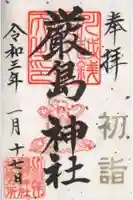 奉拝
初詣
厳島神社
令和三年
一月十七日